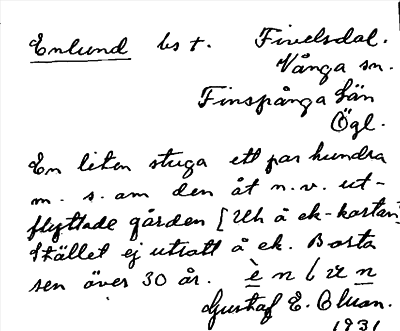 Enlund bs t. Finelsdal.
Vånga sn.
Finspånga län
Ögl.
En liten stuga ett par hundra
m. s. om den åt n.v. ut-
flyttade gården [Uh å ek-kartan]
Stället ej utsatt å ek. Borta
sen över 30 år.
Gustaf E. Bluan.
1931